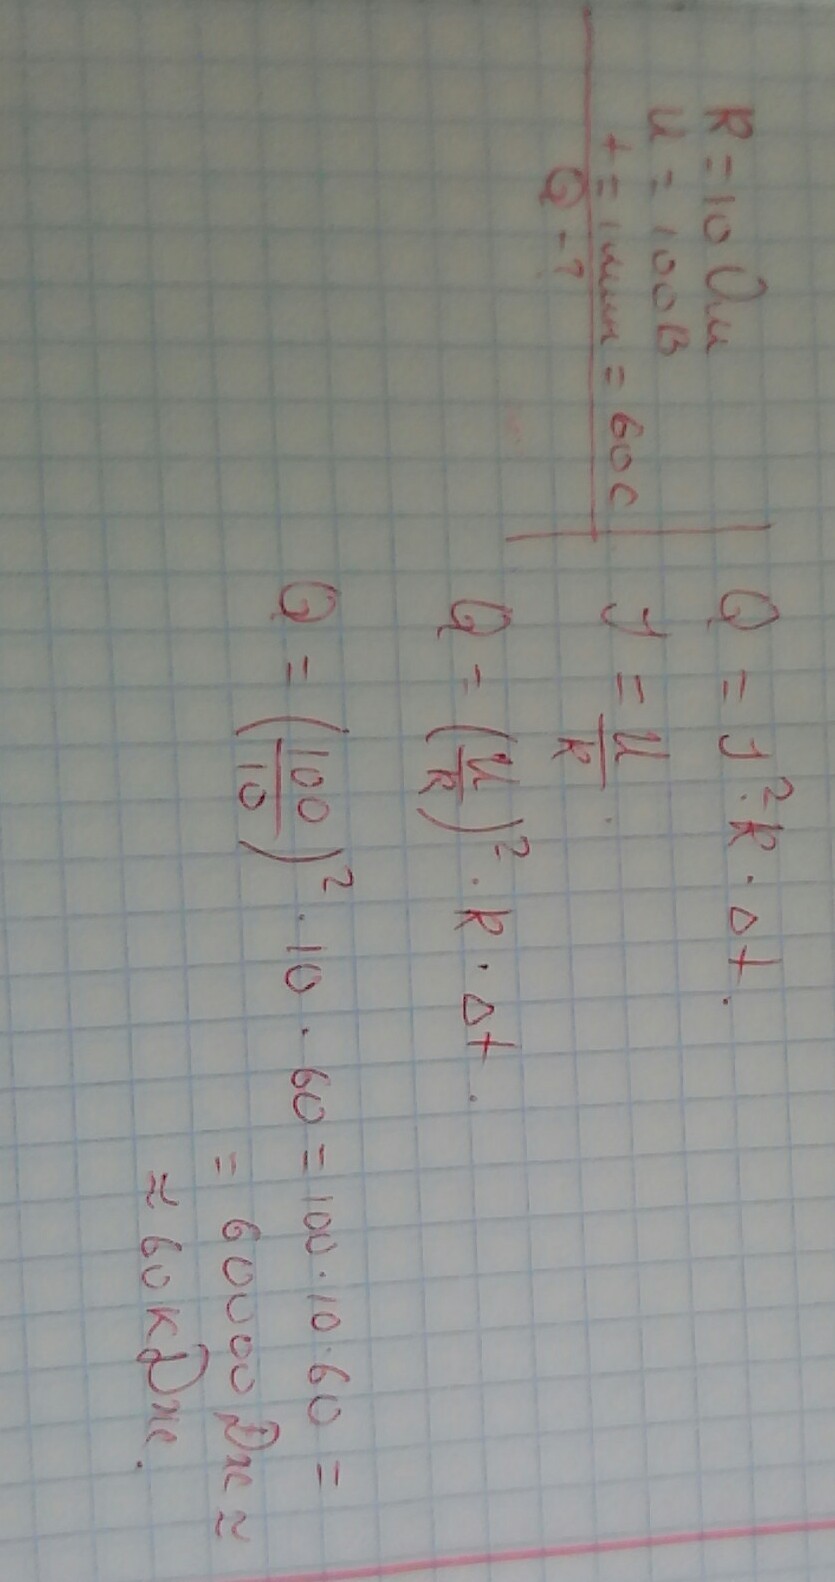 R = 10 Ом
U = 100 В
t = 1 мин = 60 с
Q - ?
Q = J² · R · Δt.
J = U/R.
Q = (U/R)² · R · Δt.
Q = (100/10)² · 10 · 60 = 100 · 10 · 60 =
= 60000 Дж ≈
≈ 60 кДж.